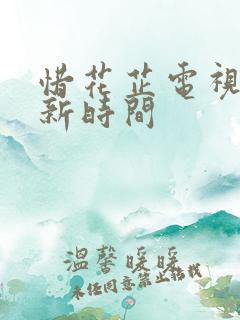 惜花芷電視
新時間
溫馨暖暖
未經同意禁止轉載